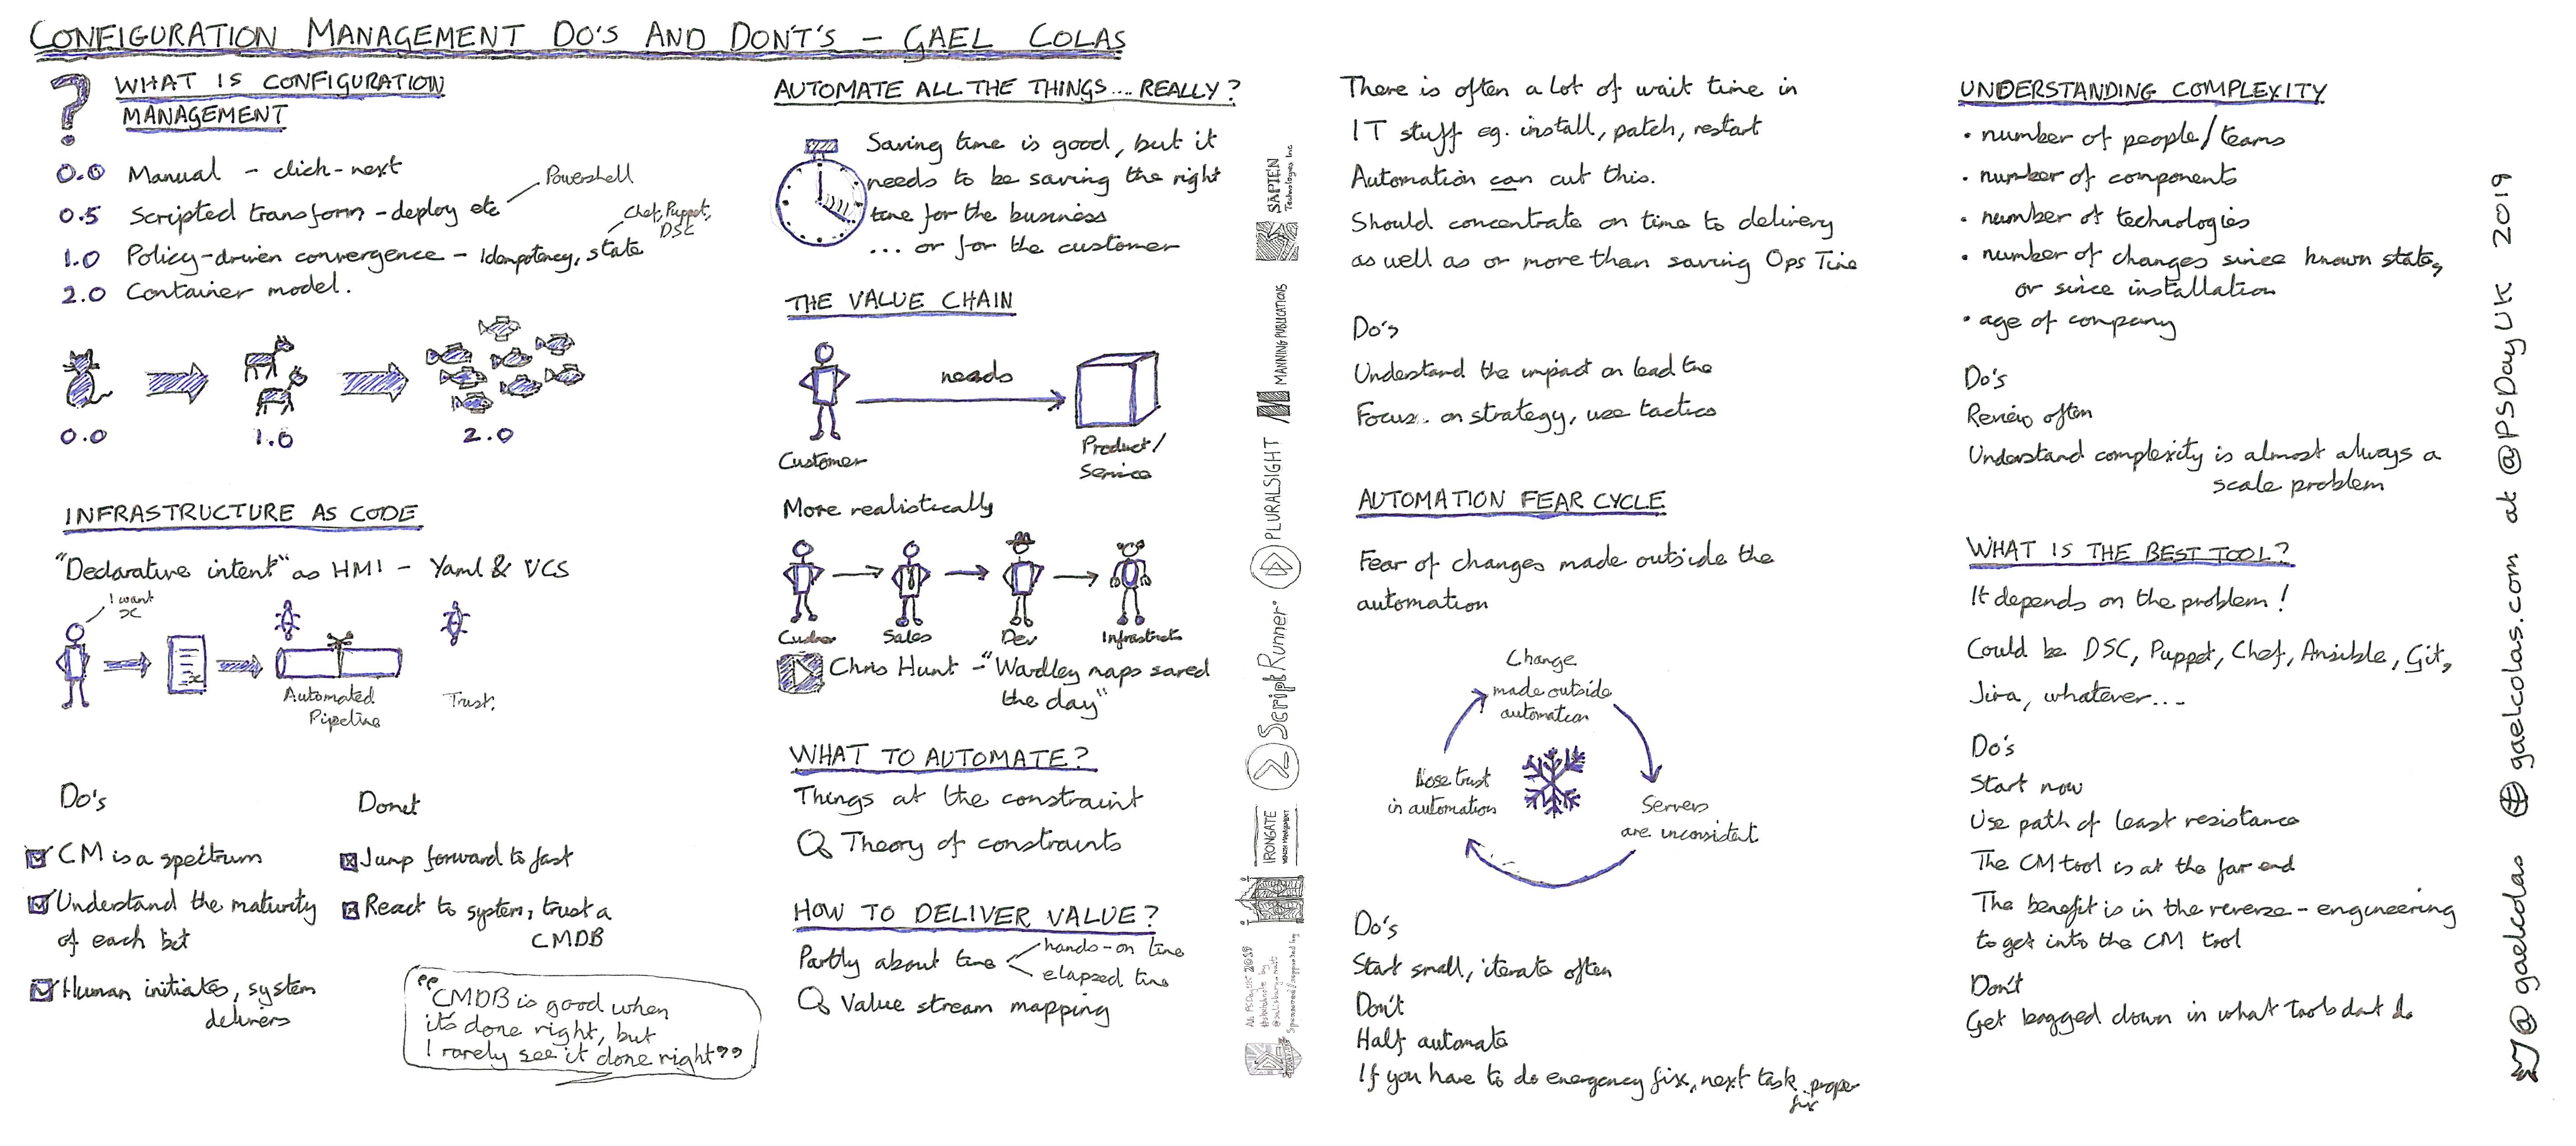 CONFIGURATION MANAGEMENT DO'S AND DON'T'S – GAEL COLAS
? WHAT IS CONFIGURATION
MANAGEMENT
0.0 Manual – click-next
Powershell
0.5 Scripted transform – deploy etc
Chef, Puppet,
DSC
1.0 Policy-driven convergence – Idempotency, state
2.0 Container model.
0.0 1.0 2.0
INFRASTRUCTURE AS CODE
"Declarative intent" as HMI – Yaml & VCS
I want
x
x
Automated
Pipeline
Trust.
Do's
CM is a spectrum
Understand the maturity
of each bit
Human initiates, system
delivers
Dont
Jump forward to fast
React to system, trust a
CMDB
"CMDB is good when
its done right, but
I rarely see it done right"
AUTOMATE ALL THE THINGS.... REALLY?
Saving time is good, but it
needs to be saving the right
time for the business
... or for the customer
THE VALUE CHAIN
needs
Customer
Product/
Service
More realistically
Sales Dev
Chris Hunt – "Wardley maps saved
the day"
WHAT TO AUTOMATE?
Things at the constraint
Theory of constraints
HOW TO DELIVER VALUE?
Partly about time
hands-on time
elapsed time
Value stream mapping
SAPIEN
Technologies Inc
MANNING PUBLICATIONS
PLURALSIGHT
ScriptRunner
IRONGATE
Sponsored/supported by
There is often a lot of wait time in
IT stuff eg. install, patch, restart
Automation can cut this.
Should concentrate on time to delivery
as well as or more than saving Ops Time
Do's
Understand the impact on lead time
Focus on strategy, use tactics
AUTOMATION FEAR CYCLE
Fear of changes made outside the
automation
Change
made outside
automation
Servers
are inconsistent
lose trust
in automation
Do's
Start small, iterate often
Don't
Half automate
If you have to do emergency fix, next task proper
fix
UNDERSTANDING COMPLEXITY
• number of people/teams
• number of components
• number of technologies
• number of changes since known state,
or since installation
• age of company
Do's
Review often
Understand complexity is almost always a
scale problem
WHAT IS THE BEST TOOL?
It depends on the problem!
Could be DSC, Puppet, Chef, Ansible, Git,
Jira, whatever...
Do's
Start now
Use path of least resistance
The CM tool is at the far end
The benefit is in the reverse-engineering
to get into the CM tool
Don't
Get bogged down in what tools dont do
@gaelcolas gaelcolas.com at @PSDayUK 2019